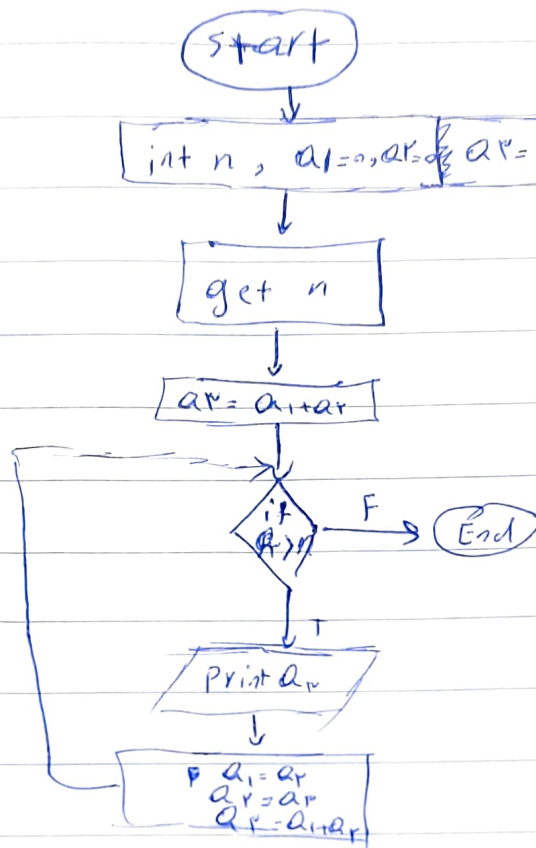 start
int n, a1=0, a۲= a۳=
get n
a۳ = a۱+a۲
if
>n
F
End
T
print a۳
a۱ = a۲
a۲ = a۳
a۳ = a۱+a۲